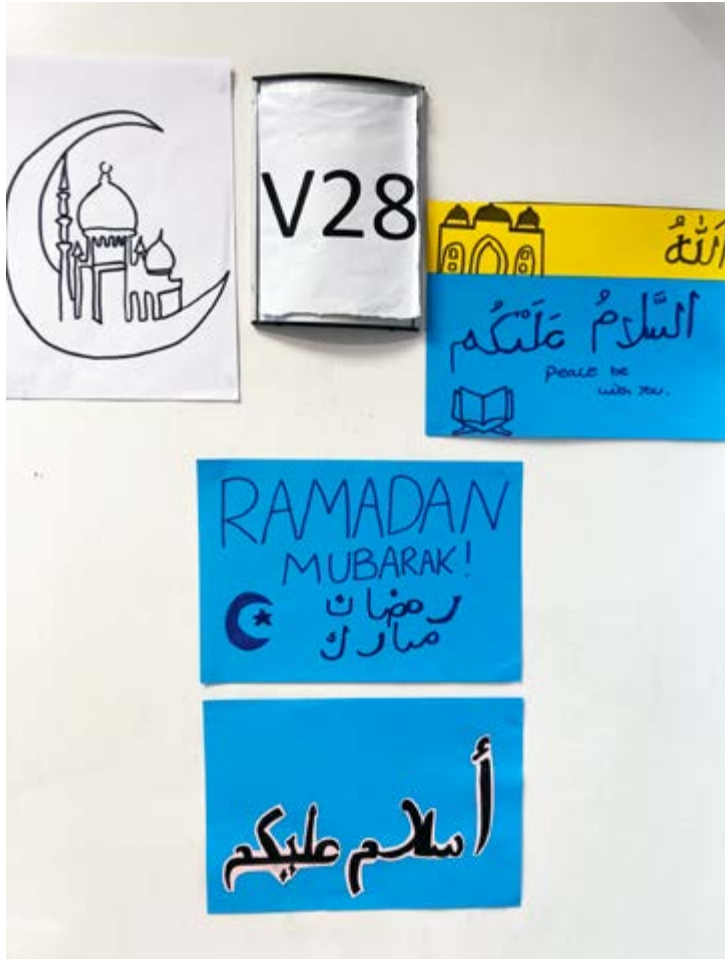 V28
اَللّٰهُ
السَّلَامُ عَلَيْكُم
Peace be
with you.
RAMADAN
MUBARAK!
رمضان
مبارك
أسلام عليكم